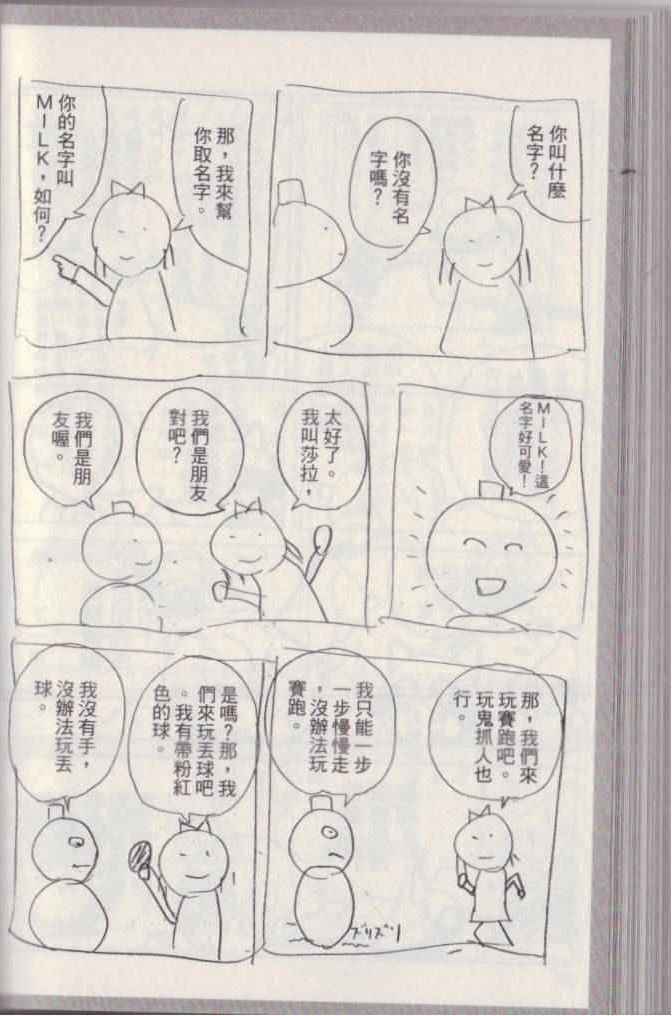 你叫什麼
名字？
你沒有名
字嗎？
那，我來幫
你取名字。
你的名字叫
MILK，如何？
MILK！這
名字好可愛！
太好了。
我叫莎拉，
我們是朋友
對吧？
我們是朋
友喔。
那，我們來
玩賽跑吧。
玩鬼抓人也
行。
我只能一步
一步慢慢走
，沒辦法玩
賽跑。
ズリズリ
是嗎？那，我
們來玩丟球吧
。我有帶粉紅
色的球。
我沒有手，
沒辦法玩丟
球。